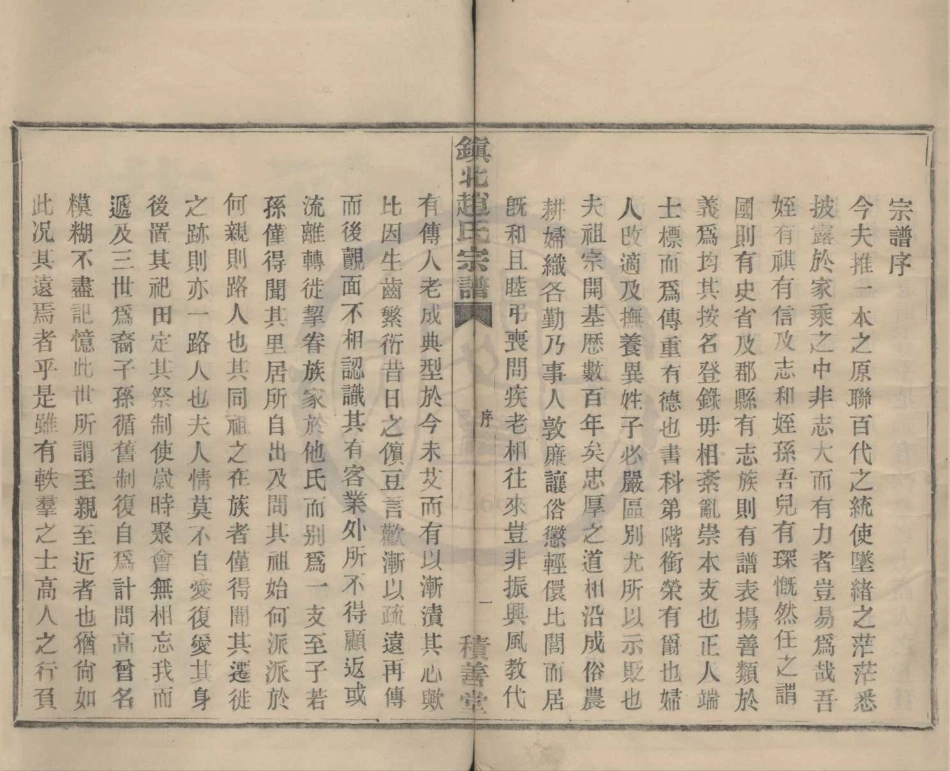 宗譜序
今夫推一本之原聯百代之統使墜緒之茫茫悉
披露於家乘之中非志大而有力者豈易爲哉吾
姪有祺有信及志和姪孫吾兒有琛慨然任之謂
國則有史省及郡縣有志族則有譜表揚善類於
義爲均其按名登錄毋相紊亂崇本支也正人端
士標而爲傳重有德也書科第階銜榮有爵也婦
人改適及撫養異姓子必嚴區別尤所以示貶也
夫祖宗開基歷數百年矣忠厚之道相沿成俗農
耕婦織各勤乃事人敦廉讓俗懲輕儇比閭而居
旣和且睦弔喪問疾老相往來豈非振興風教代
鎮北趙氏宗譜
序
一
積善堂
有傳人老成典型於今未艾而有以漸漬其心歟
比因生齒繁衍昔日之儐豆言歡漸以疏遠再傳
而後覿面不相認識其有客業外所不得顧返或
流離轉徙挈眷族家於他氏而别爲一支至子若
孫僅得聞其里居所自出及問其祖始何派派於
何親則路人也其同祖之在族者僅得聞其遷徙
之跡則亦一路人也夫人情莫不自愛復愛其身
後置其祀田定其祭制使歲時聚會無相忘我而
遞及三世爲裔子孫循舊制復自爲計問高曾名
糢糊不盡記憶此世所謂至親至近者也猶尙如
此况其遠焉者乎是雖有軼羣之士高人之行頁